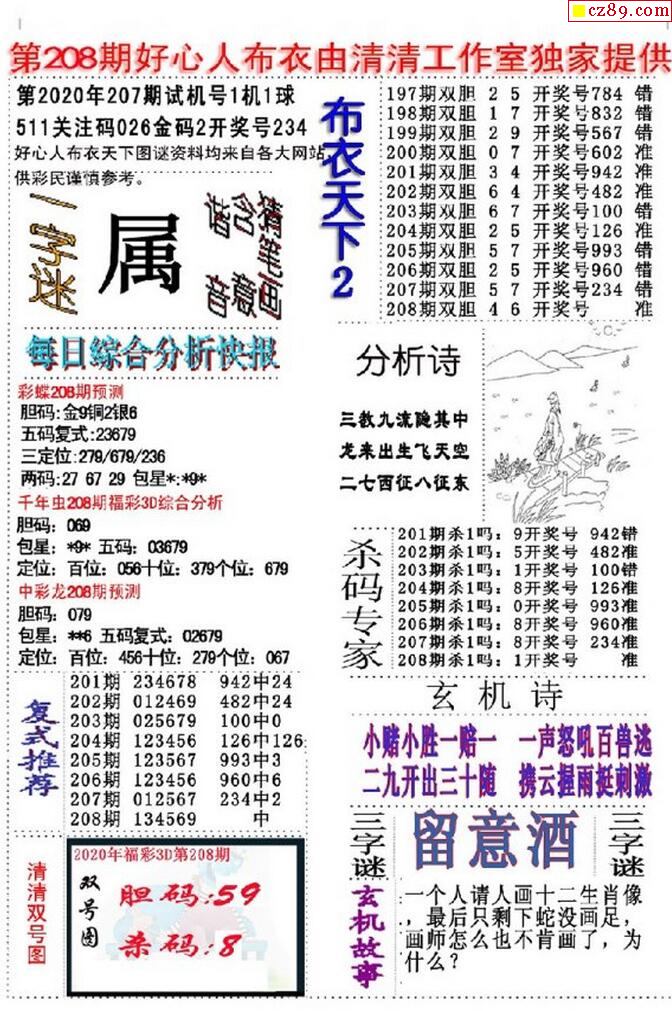 cz89.com
第208期好心人布衣由清清工作室独家提供
第2020年207期试机号1机1球
511关注码026金码2开奖号234
好心人布衣天下图谜资料均来自各大网站
供彩民谨慎参考。
一字迷
属
猜含音
猪羊画意
布衣天下2
197期双胆 2 5 开奖号784 错
198期双胆 1 7 开奖号832 错
199期双胆 2 9 开奖号567 错
200期双胆 0 7 开奖号602 准
201期双胆 3 4 开奖号942 准
202期双胆 6 4 开奖号482 准
203期双胆 6 7 开奖号100 错
204期双胆 2 5 开奖号126 准
205期双胆 5 7 开奖号993 错
206期双胆 2 5 开奖号960 错
207期双胆 5 7 开奖号234 错
208期双胆 4 6 开奖号 准
每日综合分析快报
彩蝶208期预测
胆码:金9铜2银6
五码复式:23679
三定位:279/679/236
两码:27 67 29 包星*:*9*
千年虫208期福彩3D综合分析
胆码：069
包星：*9* 五码：03679
定位：百位：056十位：379个位：679
中彩龙208期预测
胆码：079
包星：**6 五码复式：02679
定位：百位：456十位：279个位：067
分析诗
三教九流隐其中
龙来出生飞天空
二七西征八征东
杀码专家
201期杀1吗：9开奖号 942错
202期杀1吗：5开奖号 482准
203期杀1吗：1开奖号 100错
204期杀1吗：8开奖号 126准
205期杀1吗：0开奖号 993准
206期杀1吗：8开奖号 960准
207期杀1吗：8开奖号 234准
208期杀1吗：1开奖号 准
复式推荐
201期 234678 942中24
202期 012469 482中24
203期 025679 100中0
204期 123456 126中126
205期 123567 993中3
206期 123456 960中6
207期 012567 234中2
208期 134569 中
玄机诗
小赌小胜一赔一 一声怒吼百兽逃
二九开出三十随 携云握雨挺刺激
三字谜
留意酒
三字谜
清清双号图
2020年福彩3D第208期
双号图
胆码:59
杀码:8
玄机故事
一个人请人画十二生肖像
，最后只剩下蛇没画足，
画师怎么也不肯画了，为
什么？